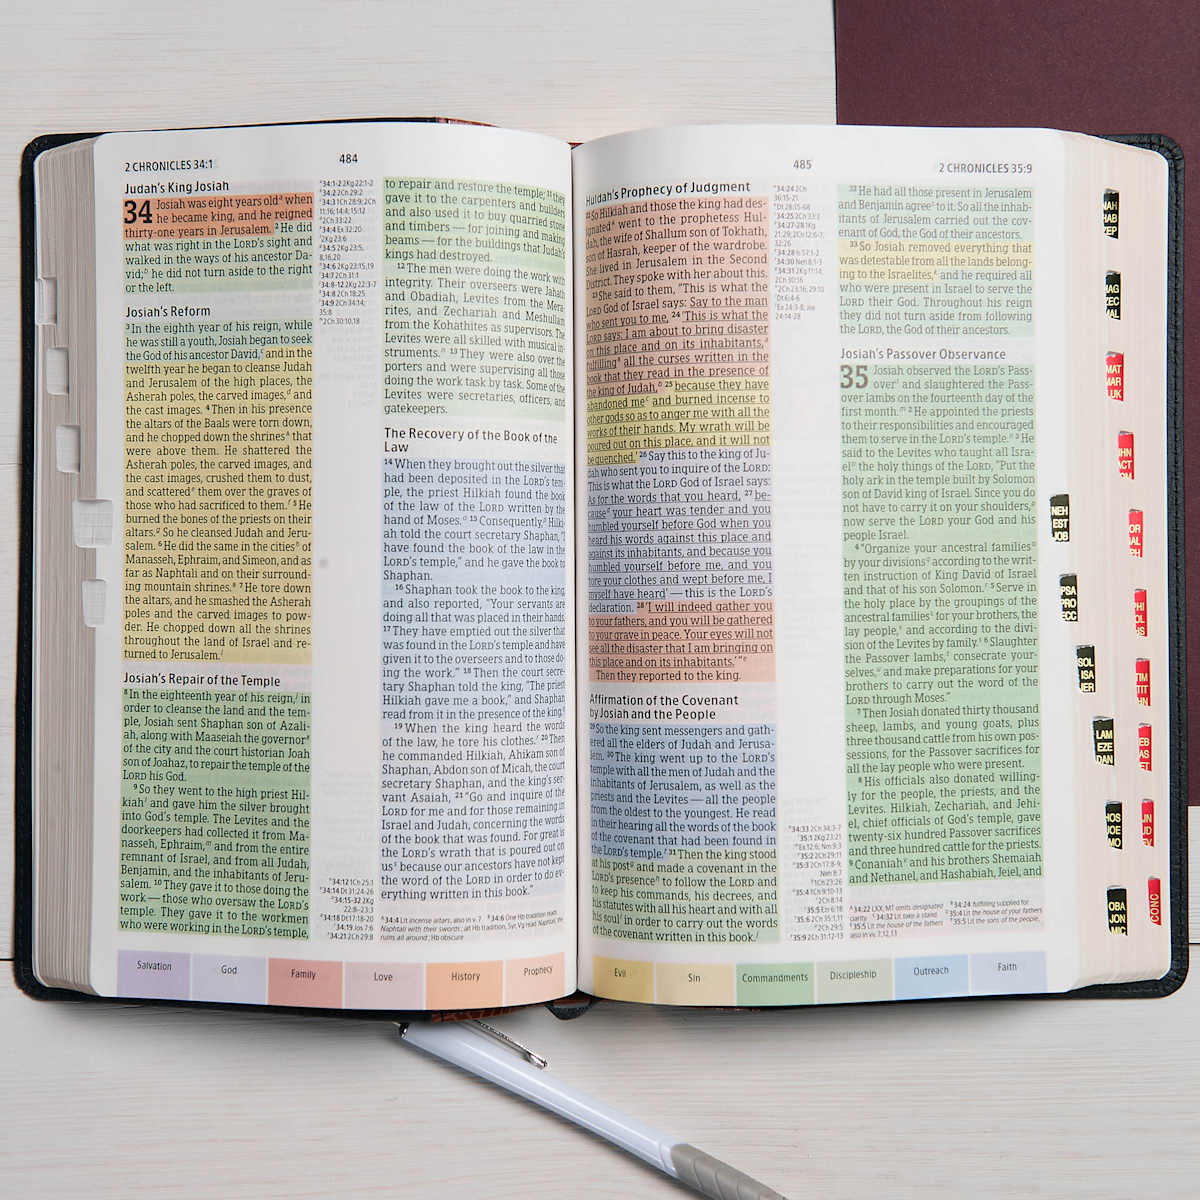 2 CHRONICLES 34:1
484
Judah's King Josiah
34 Josiah was eight years old when
he became king, and he reigned
thirty-one years in Jerusalem. 2 He did
what was right in the LORD's sight and
walked in the ways of his ancestor Da-
vid; he did not turn aside to the right
or the left.
Josiah's Reform
3 In the eighth year of his reign, while
he was still a youth, Josiah began to seek
the God of his ancestor David, and in the
twelfth year he began to cleanse Judah
and Jerusalem of the high places, the
Asherah poles, the carved images, and
the cast images. 4 Then in his presence
the altars of the Baals were torn down,
and he chopped down the shrines that
were above them. He shattered the
Asherah poles, the carved images, and
the cast images, crushed them to dust,
and scattered them over the graves of
those who had sacrificed to them. 5 He
burned the bones of the priests on their
altars. So he cleansed Judah and Jeru-
salem. 6 He did the same in the cities of
Manasseh, Ephraim, and Simeon, and as
far as Naphtali and on their surround-
ing mountain shrines. 7 He tore down
the altars, and he smashed the Asherah
poles and the carved images to pow-
der. He chopped down all the shrines
throughout the land of Israel and re-
turned to Jerusalem.
Josiah's Repair of the Temple
8 In the eighteenth year of his reign, in
order to cleanse the land and the tem-
ple, Josiah sent Shaphan son of Azali-
ah, along with Maaseiah the governor
of the city and the court historian Joah
son of Joahaz, to repair the temple of the
LORD his God.
9 So they went to the high priest Hil-
kiah and gave him the silver brought
into God's temple. The Levites and the
doorkeepers had collected it from Ma-
nasseh, Ephraim, and from the entire
remnant of Israel, and from all Judah,
Benjamin, and the inhabitants of Jeru-
salem. 10 They gave it to those doing the
work — those who oversaw the LORD's
temple. They gave it to the workmen
who were working in the LORD's temple,
to repair and restore the temple; 11 they
gave it to the carpenters and builders
and also used it to buy quarried stone
and timbers — for joining and making
beams — for the buildings that Judah's
kings had destroyed.
12 The men were doing the work with
integrity. Their overseers were Jahath
and Obadiah, Levites from the Mera-
rites, and Zechariah and Meshullam
from the Kohathites as supervisors. The
Levites were all skilled with musical in-
struments. 13 They were also over the
porters and were supervising all those
doing the work task by task. Some of the
Levites were secretaries, officers, and
gatekeepers.
The Recovery of the Book of the
Law
14 When they brought out the silver that
had been deposited in the LORD's tem-
ple, the priest Hilkiah found the book
of the law of the LORD written by the
hand of Moses. 15 Consequently, Hilki-
ah told the court secretary Shaphan, "I
have found the book of the law in the
LORD's temple," and he gave the book to
Shaphan.
16 Shaphan took the book to the king,
and also reported, "Your servants are
doing all that was placed in their hands.
17 They have emptied out the silver that
was found in the LORD's temple and have
given it to the overseers and to those do-
ing the work." 18 Then the court secre-
tary Shaphan told the king, "The priest
Hilkiah gave me a book," and Shaphan
read from it in the presence of the king.
19 When the king heard the words
of the law, he tore his clothes. 20 Then
he commanded Hilkiah, Ahikam son of
Shaphan, Abdon son of Micah, the court
secretary Shaphan, and the king's ser-
vant Asaiah, 21 "Go and inquire of the
LORD for me and for those remaining in
Israel and Judah, concerning the words
of the book that was found. For great is
the LORD's wrath that is poured out on
us because our ancestors have not kept
the word of the LORD in order to do ev-
erything written in this book."
Salvation
God
Family
Love
History
Prophecy
485
2 CHRONICLES 35:9
Huldah's Prophecy of Judgment
22 So Hilkiah and those the king had des-
ignated went to the prophetess Hul-
dah, the wife of Shallum son of Tokhath,
son of Hasrah, keeper of the wardrobe.
She lived in Jerusalem in the Second
District. They spoke with her about this.
23 She said to them, "This is what the
LORD God of Israel says: Say to the man
who sent you to me, 24 'This is what the
LORD says: I am about to bring disaster
on this place and on its inhabitants,
fulfilling all the curses written in the
book that they read in the presence of
the king of Judah, 25 because they have
abandoned me and burned incense to
other gods so as to anger me with all the
works of their hands. My wrath will be
poured out on this place, and it will not
be quenched.' 26 Say this to the king of Ju-
dah who sent you to inquire of the LORD:
'This is what the LORD God of Israel says:
As for the words that you heard, 27 be-
cause your heart was tender and you
humbled yourself before God when you
heard his words against this place and
against its inhabitants, and because you
humbled yourself before me, and you
tore your clothes and wept before me, I
myself have heard' — this is the LORD's
declaration. 28 'I will indeed gather you
to your fathers, and you will be gathered
to your grave in peace. Your eyes will not
see all the disaster that I am bringing on
this place and on its inhabitants.'"
Then they reported to the king.
Affirmation of the Covenant
by Josiah and the People
29 So the king sent messengers and gath-
ered all the elders of Judah and Jerusa-
lem. 30 The king went up to the LORD's
temple with all the men of Judah and the
inhabitants of Jerusalem, as well as the
priests and the Levites — all the people
from the oldest to the youngest. He read
in their hearing all the words of the book
of the covenant that had been found in
the LORD's temple. 31 Then the king stood
at his post and made a covenant in the
LORD's presence to follow the LORD and
to keep his commands, his decrees, and
his statutes with all his heart and with all
his soul in order to carry out the words
of the covenant written in this book.
32 He had all those present in Jerusalem
and Benjamin agree to it. So all the inhab-
itants of Jerusalem carried out the cov-
enant of God, the God of their ancestors.
33 So Josiah removed everything that
was detestable from all the lands belong-
ing to the Israelites, and he required all
who were present in Israel to serve the
LORD their God. Throughout his reign
they did not turn aside from following
the LORD, the God of their ancestors.
Josiah's Passover Observance
35 Josiah observed the LORD's Pass-
over and slaughtered the Pass-
over lambs on the fourteenth day of the
first month. 2 He appointed the priests
to their responsibilities and encouraged
them to serve in the LORD's temple. 3 He
said to the Levites who taught all Isra-
el the holy things of the LORD, "Put the
holy ark in the temple built by Solomon
son of David king of Israel. Since you do
not have to carry it on your shoulders,
now serve the LORD your God and his
people Israel.
4 "Organize your ancestral families
by your divisions according to the writ-
ten instruction of King David of Israel
and that of his son Solomon. 5 Serve in
the holy place by the groupings of the
ancestral families for your brothers, the
lay people, and according to the divi-
sion of the Levites by family. 6 Slaughter
the Passover lambs, consecrate your-
selves, and make preparations for your
brothers to carry out the word of the
LORD through Moses."
7 Then Josiah donated thirty thousand
sheep, lambs, and young goats, plus
three thousand cattle from his own pos-
sessions, for the Passover sacrifices for
all the lay people who were present.
8 His officials also donated willing-
ly for the people, the priests, and the
Levites. Hilkiah, Zechariah, and Jehi-
el, chief officials of God's temple, gave
twenty-six hundred Passover sacrifices
and three hundred cattle for the priests.
9 Conaniah and his brothers Shemaiah
and Nethanel, and Hashabiah, Jeiel, and
Evil
Sin
Commandments
Discipleship
Outreach
Faith
NEH
EST
JOB
PSA
PRO
ECC
SOL
ISA
JER
LAM
EZE
DAN
HOS
JOE
OBA
JON
MIC
MAT
MAR
CONC